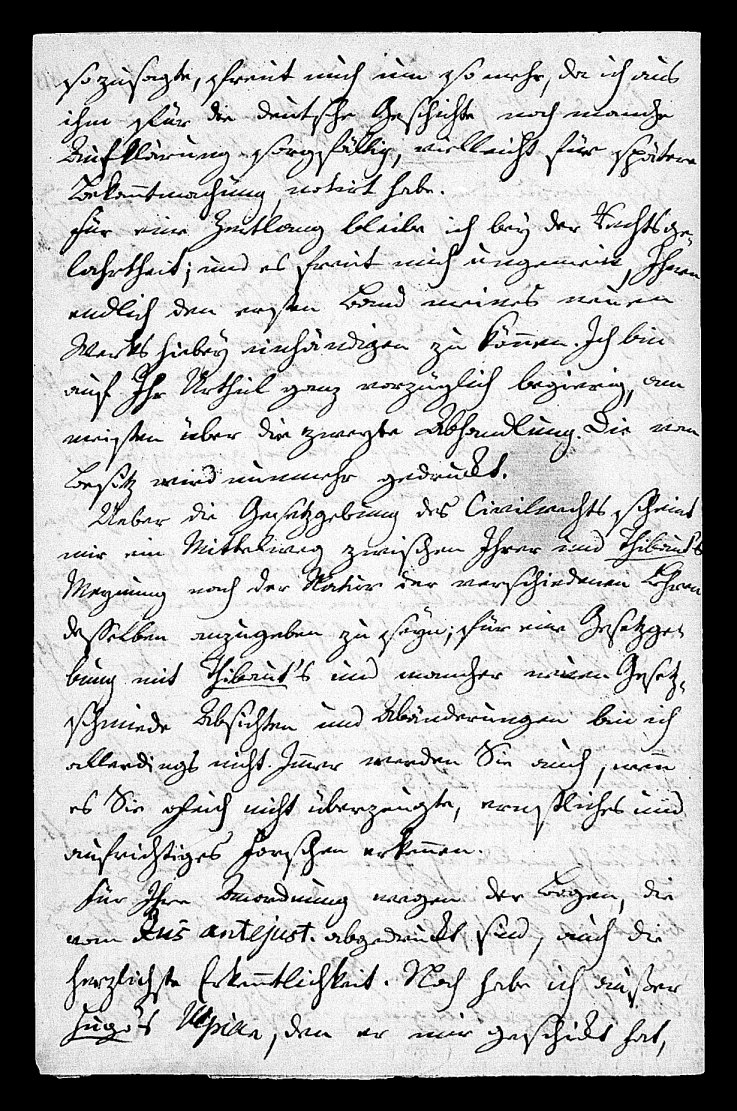 so zusagte, freut mich um so mehr, da ich aus
ihm für die deutsche Geschichte noch manche
Aufklärung sorgfältig, vielleicht für spätere
Bekanntmachung, notirt habe.
Für eine Zeitlang bleibe ich bey der Rechtsge-
lahrtheit; und es freut mich ungemein, Ihnen
endlich den ersten Band meines neuen
Werks hiebey einhändigen zu können. Ich bin
auf Ihr Urtheil ganz vorzüglich begierig, am
meisten über die zweyte Abhandlung. Die vom
Besitz wird nunmehr gedruckt.
Ueber die Gesetzgebung des Civilrechts scheint
mir ein Mittelweg zwischen Ihrer und Thibaut's
Meynung nach der Natur der verschiedenen Lehren
desselben anzugeben zu seyn; für eine Gesetzge-
bung mit Thibaut's und mancher neuen Gesetz-
schmiede Absichten und Abänderungen bin ich
allerdings nicht. Immer werden Sie auch, wenn
es Sie gleich nicht überzeugte, ernstliches und
aufrichtiges Forschen erkennen.
Für Ihre Anordnung wegen der Bogen, die
vom Jus antejust. abgedruckt sind, auch die
herzlichste Erkenntlichkeit. Noch habe ich außer
Hugo's Ulpian, den er mir geschickt hat,